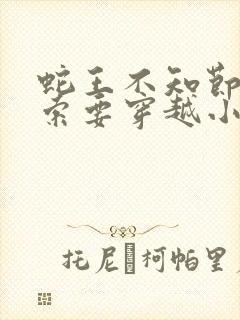 蛇王不知节
索要穿越小
托尼 柯帕里